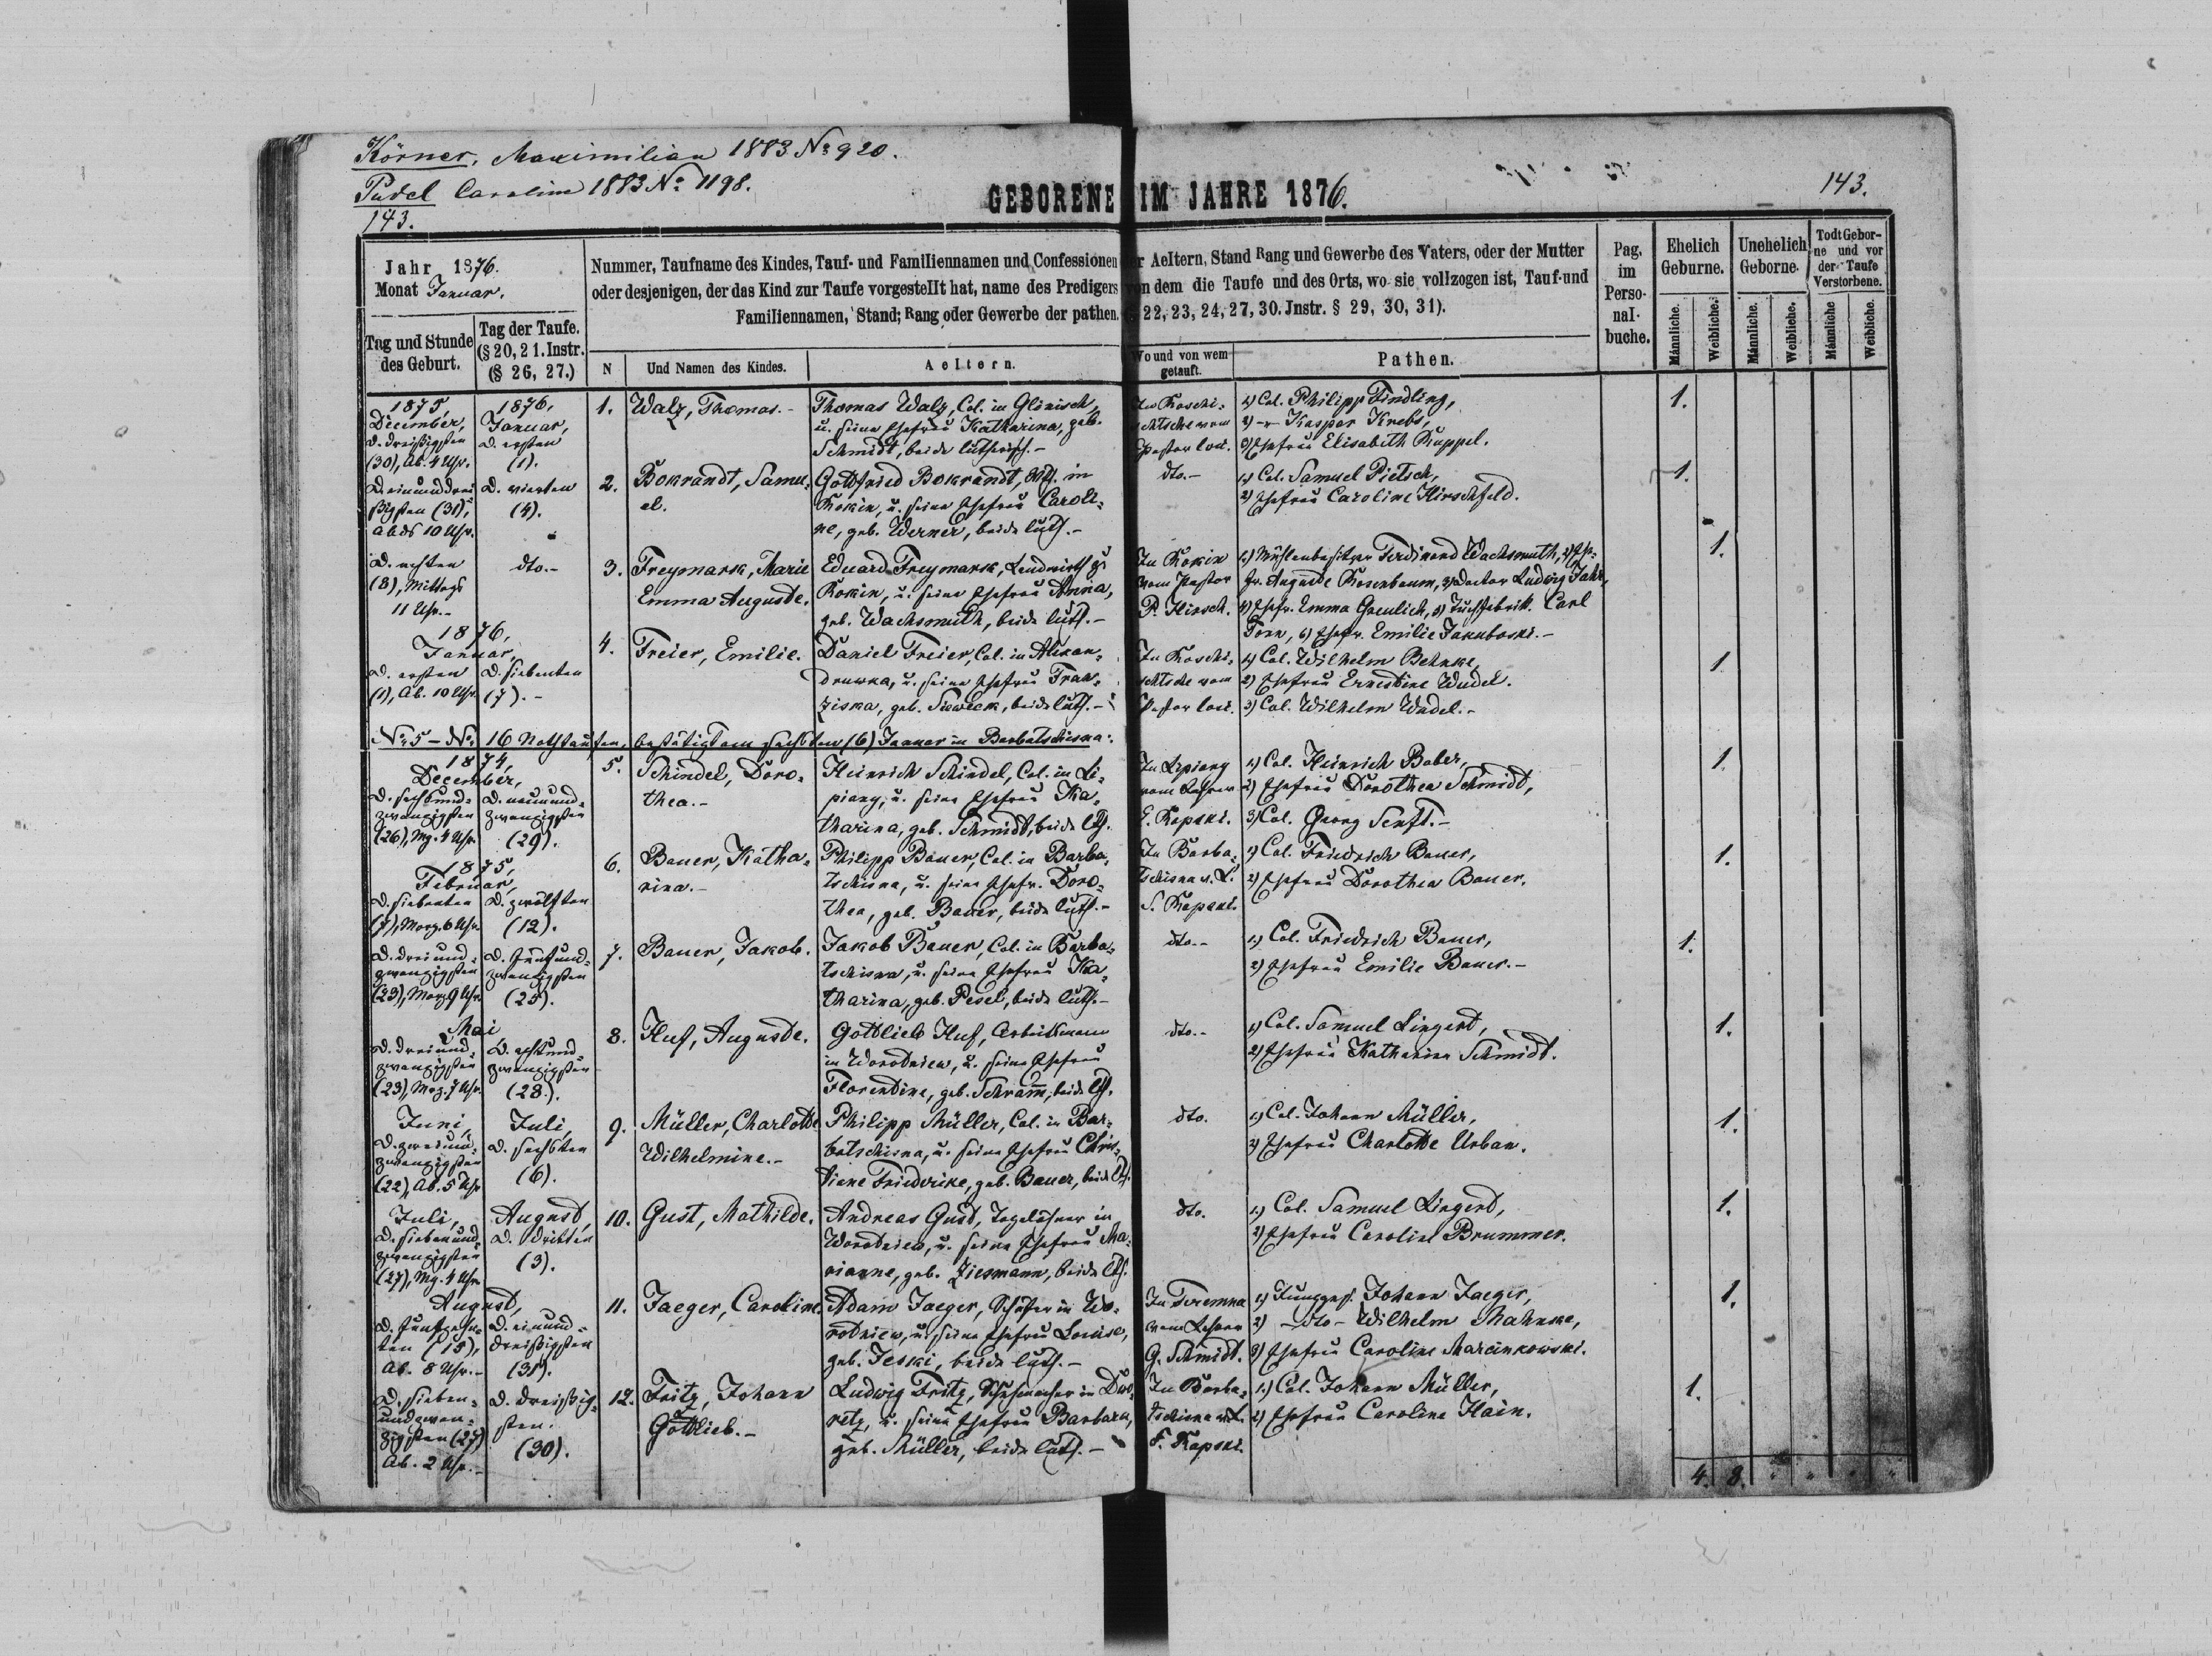 Körner, Maximilian 1883 № 920.
Pudel Caroline 1883 № 1198.
143.
GEBORENE IM JAHRE 1876.
143.
Jahr 1876.
Monat Januar.
Tag und Stunde des Geburt.
Tag der Taufe. (§ 20, 21. Instr. (§ 26, 27.)
Nummer, Taufname des Kindes, Tauf- und Familiennamen und Confessionen der Aeltern, Stand Rang und Gewerbe des Vaters, oder der Mutter
oder desjenigen, der das Kind zur Taufe vorgestellt hat, name des Predigers von dem die Taufe und des Orts, wo sie vollzogen ist, Tauf-und
Familiennamen, Stand; Rang oder Gewerbe der pathen. 22, 23, 24, 27, 30. Jnstr. § 29, 30, 31).
N
Und Namen des Kindes.
Aeltern.
Wo und von wem getauft.
Pathen.
Pag. im Perso-nal-buche.
Ehelich Geburne.
Unehelich Geborne.
Todt Gebor-ne und vor der Taufe Verstorbene.
Männliche.
Weibliche.
Männliche.
Weibliche.
Männliche
Weibliche.
1875, December, d. dreißigsten (30), Ab. 4 Uhr.
1876, Januar, d. ersten (1).
1.
Walz, Thomas.-
Thomas Walz, Col. in Glinisch,
u. seine Ehefrau Katharina, geb.
Schmidt, beide lutherisch.-
In Roschi-
schtsche vom
Pastor loci.
1) Col. Philipp Findling,
2) -"- Kaspar Krebs,
3) Ehefrau Elisabeth Kuppel.
1.
D. einunddrei-
ßigsten (31),
abds 10 Uhr.
D. vierten
(4).
2.
Bokrandt, Samu-
el.
Gottfried Bokrandt, in
Rokin, u. seine Ehefrau Caroli-
ne, geb. Werner, beide luth.-
dto.-
1) Col. Samuel Pietsch,
2) Ehefrau Caroline Hirschfeld.
1.
D. achten
(8), Mittags
11 Uhr.-
dto.-
3.
Freymark, Marie
Emma Auguste.
Eduard Freymark, Landwirth zu
Rokin, u. seine Ehefrau Anna,
geb. Wachsmuth, beide luth.-
In Rokin
vom Pastor
P. Hirsch.
1) Mühlenbesitzer Ferdinand Wachsmuth, 2) Ehe-
fr. Auguste Rosenbaum, 3) Doctor Ludwig Jahr,
4) Ehefr. Emma Greulich, 5) Tuchfabrik. Carl
Torn, 6) Ehefr. Emilie Jakuboski.-
1.
1876,
Januar,
d. ersten
(1), Ab. 10 Uhr
d. siebenten
(7).-
4.
Freier, Emilie.
Daniel Freier, Col. in Alexan-
druwka, u. seine Ehefrau Fran-
ziska, geb. Siewieck, beide luth.-
In Roschi-
schtsche vom
Pastor loci.
1) Col. Wilhelm Behnke,
2) Ehefrau Ernestine Wudel.
3) Col. Wilhelm Wudel.-
1.
№ 5 - № 16 Nothtaufen, bestätigt am sechsten (6) Januar in Barbatschisna:
1874,
December,
D. sechsund-
zwanzigsten
(26), Mg. 4 Uhr.
D. neunund-
zwanzigsten
(29).
5.
Schindel, Doro-
thea.-
Heinrich Schindel, Col. in Li-
piany, u. seine Ehefrau Ka-
tharina, geb. Schmidt, beide lth.
In Lipiany
vom Lehrer
E. Kapski.
1) Col. Heinrich Bober,
2) Ehefrau Dorothea Schmidt,
3) Col. Georg Senft.-
1.
1875,
Februar,
D. siebenten
(7), Morg. 6 Uhr.
D. zwölften
(12).
6.
Bauer, Katha-
rina.-
Philipp Bauer, Col. in Barba-
tschisna, u. seine Ehefr. Doro-
thea, geb. Bauer, beide luth.-
In Barba-
tschisna v. L.
S. Kapski.
1) Col. Friedrich Bauer,
2) Ehefrau Dorothea Bauer.
1.
D. dreiund-
zwanzigsten
(23), Morg. 9 Uhr.
D. fünfund-
zwanzigsten
(25).
7.
Bauer, Jakob.
Jakob Bauer, Col. in Barba-
tschisna, u. seine Ehefrau Ka-
tharina, geb. Pesel, beide luth.-
dto.-
1) Col. Friedrich Bauer,
2) Ehefrau Emilie Bauer.-
1.
Mai
D. dreiund-
zwanzigsten
(23), Mrg. 7 Uhr.
D. achtund-
zwanzigsten
(28.).
8.
Huf, Auguste.
Gottlieb Huf, Arbeitsmann
in Worotniew, u. seine Ehefrau
Florentine, geb. Schramm, beide lth.
dto.-
1) Col. Samuel Lingert,
2) Ehefrau Katharina Schmidt.
1.
Juni,
D. zweiund-
zwanzigsten
(22), Ab. 5 Uhr
Juli,
D. sechsten
(6).
9.
Müller, Charlotte
Wilhelmine.-
Philipp Müller, Col. in Bar-
batschisna, u. seine Ehefrau Chris-
tiane Friedrike, geb. Bauer, beide lth.
dto.
1) Col. Johann Müller,
2) Ehefrau Charlotte Urban.
1.
Juli,
D. siebenund-
zwanzigsten
(27), Mg. 4 Uhr.
August,
D. dritten
(3).
10.
Gust, Mathilde.
Andreas Gust, Tagelöhner in
Worotniew, u. seine Ehefrau Ma-
rianne, geb. Ziesmann, beide lth.
dto.
1) Col. Samuel Lingert,
2) Ehefrau Caroline Brummer.
1.
August,
D. fünfzehn-
ten (15),
Ab. 8 Uhr.-
D. einund-
dreißigsten
(31).
11.
Jaeger, Caroline.
Adam Jaeger, Schäfer in Wo-
rotniew, u. seine Ehefrau Louise,
geb. Jeski, beide luth.-
In Teremna
vom Lehrer
G. Schmidt.
1) Junggs. Johann Jaeger,
2) -dto- Wilhelm Mahnke,
3) Ehefrau Caroline Marcinkowski.
1.
D. sieben-
undzwan-
zigsten (27)
Ab. 2 Uhr.-
D. dreißig-
sten.
(30).
12.
Fritz, Johann
Gottlieb.-
Ludwig Fritz, Schuhmacher in Dwo-
retz, u. seine Ehefrau Barbara,
geb. Müller, beide luth.-
In Barba-
tschisna v. L.
F. Kapski.
1.) Col. Johann Müller,
2) Ehefrau Caroline Hain.
1.
4. 8. " " " "